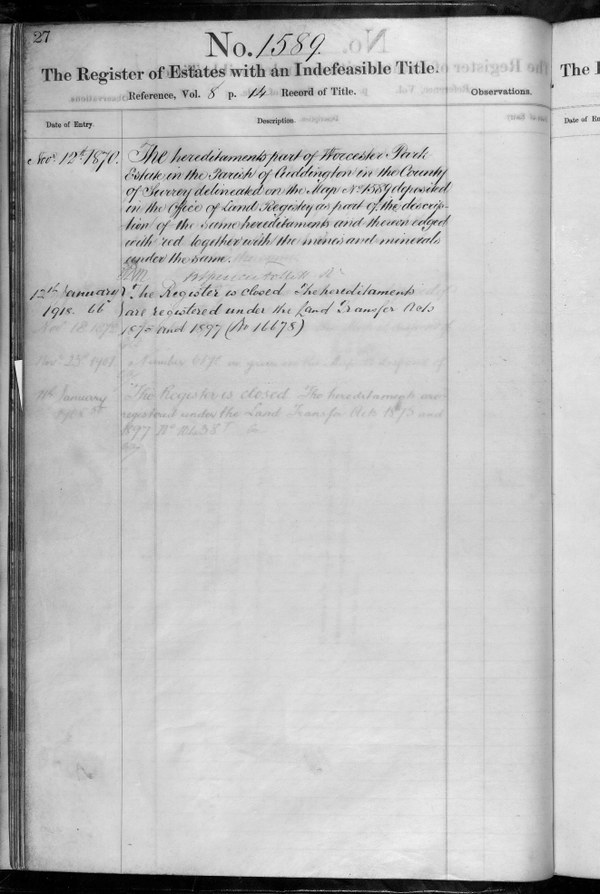 27
No. 1589
The Register of Estates with an Indefeasible Title.
Reference, Vol. 8 p. 14 Record of Title.
Observations.
Date of Entry.
Description.
Novr. 12th 1870.
The hereditaments part of Worcester Park
Estate in the Parish of Cuddington in the County
of Surrey delineated on the Map No 1589 deposited
in the Office of Land Registry as part of the descrip-
tion of the same hereditaments and thereon edged
with red together with the mines and minerals
under the same.
12th January
1918.
The Register is closed. The hereditaments
are registered under the Land Transfer Acts
1875 and 1897 (No 16678)
1901
January
The Register is closed. The hereditaments are
registered under the Land Transfer Acts 1875 and
1897
The I
Date of En